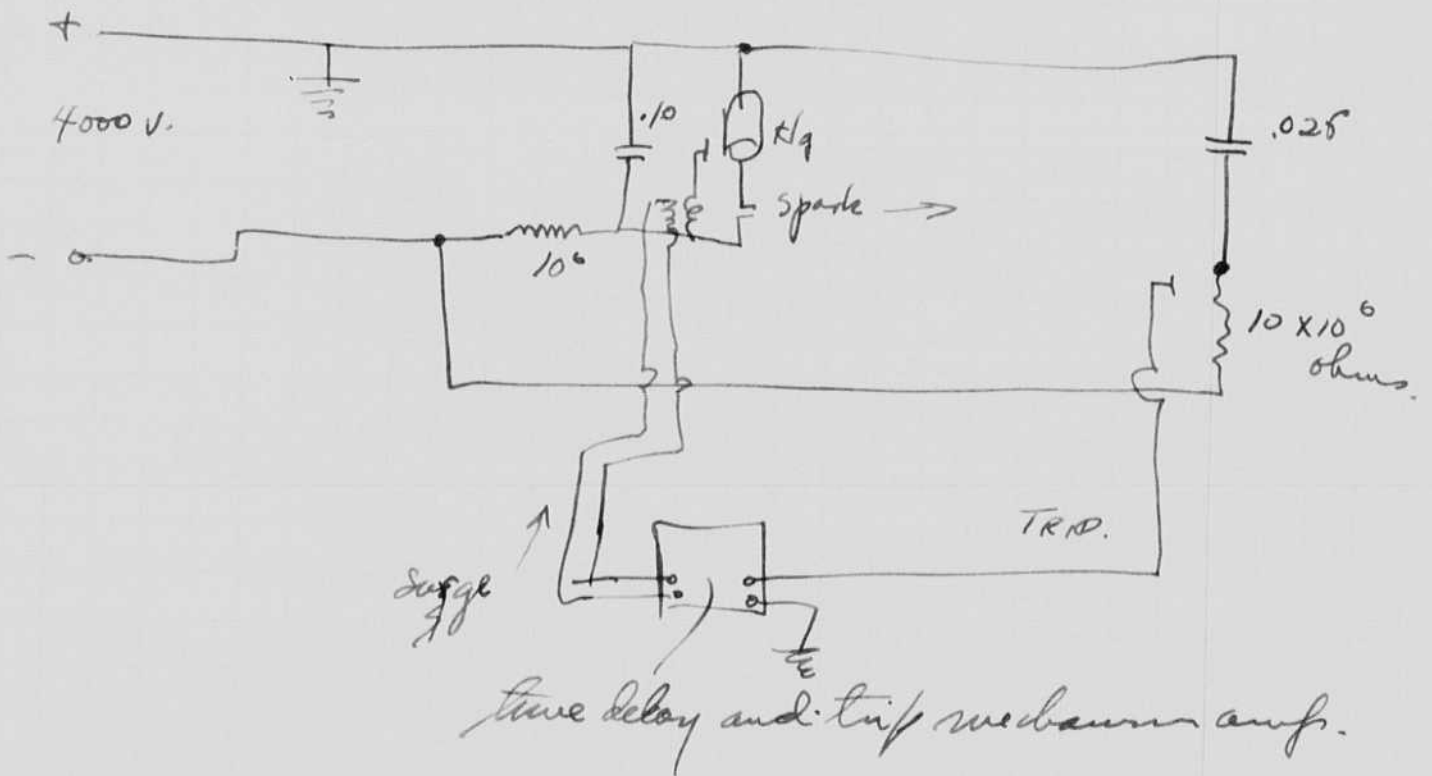 +
4000 V.
.10
spark
.025
-
10⁶
10 X 10⁶
ohms.
TRIP.
Surge
time delay and trip mechanism amp.